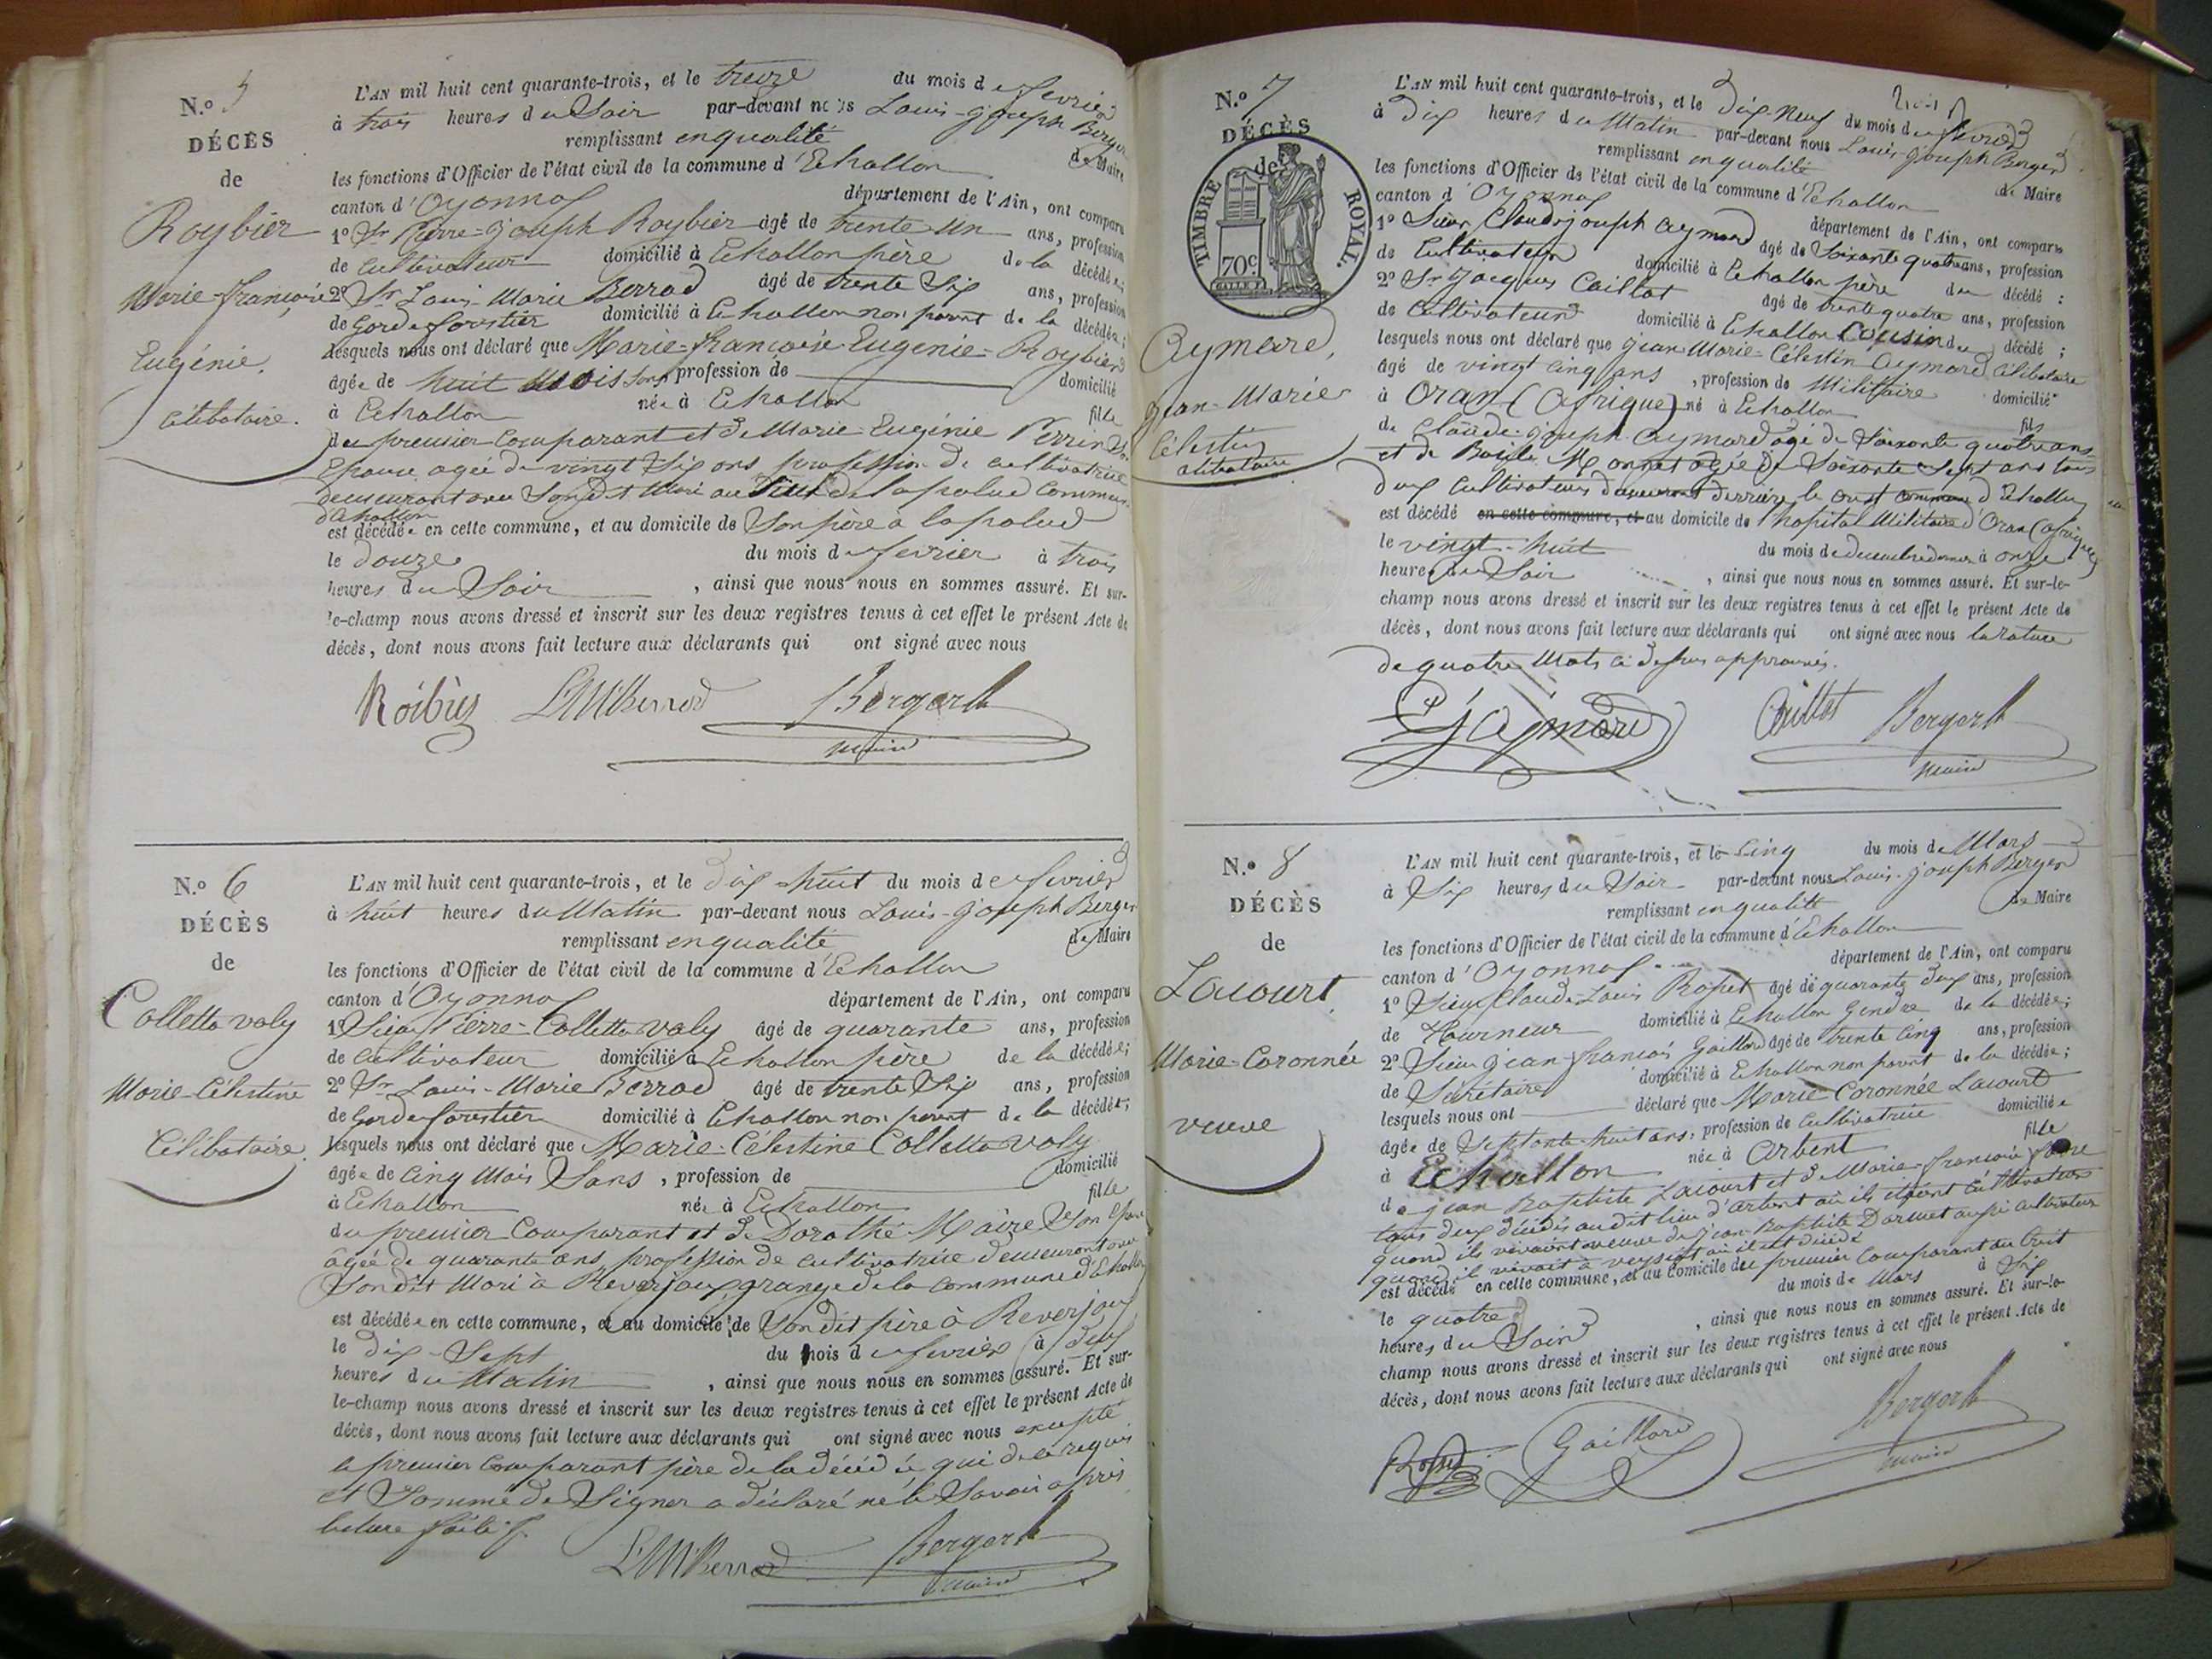 N.o 5
DÉCÈS
de
Roybier
Marie-françoise
Eugénie.
Célibataire.
L'AN mil huit cent quarante-trois, et le treize du mois de fevrier
à trois heures du Soir par-devant nous Louis-joseph Berger
remplissant en qualité de Maire
les fonctions d'Officier de l'état civil de la commune d'Echallon
canton d'Oyonnax département de l'Ain, ont comparu
1° Sr Pierre-joseph Roybier âgé de trente un ans, profession
de Cultivateur domicilié à Echallon père de la décédée;
2° Sr Louis-Marie Berrod âgé de trente Six ans, profession
de Garde forestier domicilié à Echallon non parent de la décédée;
lesquels nous ont déclaré que Marie-françoise Eugénie-Roybier
âgée de huit Mois Sans profession de domicilié
à Echallon née à Echallon fille
du premier Comparant et de Marie-Eugénie Perrin Son
Epouse agée de vingt Six ans, profession de cultivatrice
demeurant avec Son dit Mari au lieu de la palud Commune
d'Echallon
est décédée en cette commune, et au domicile de Son père a la palud
le douze du mois de fevrier à trois
heures du Soir , ainsi que nous nous en sommes assuré. Et sur-
le-champ nous avons dressé et inscrit sur les deux registres tenus à cet effet le présent Acte de
décès, dont nous avons fait lecture aux déclarants qui ont signé avec nous
Roibier LMBerrod Berger
maire
N.o 6
DÉCÈS
de
Colletta valy
Marie-Célestine
Célibataire.
L'AN mil huit cent quarante-trois, et le dix-huit du mois de fevrier
à huit heures du Matin par-devant nous Louis-joseph Berger
remplissant en qualité de Maire
les fonctions d'Officier de l'état civil de la commune d'Echallon
canton d'Oyonnax département de l'Ain, ont comparu
1° Sieur Pierre-Colletta valy âgé de quarante ans, profession
de Cultivateur domicilié à Echallon père de la décédée;
2° Sr Louis-Marie Berrod âgé de trente Six ans, profession
de Garde forestier domicilié à Echallon non parent de la décédée;
lesquels nous ont déclaré que Marie-Célestine Colletta valy
âgée de Cinq Mois Sans , profession de domicilié
à Echallon née à Echallon fille
du premier Comparant et de Dorothé Maire Son Epouse
âgée de quarante ans profession de cultivatrice demeurant avec
Son dit Mari à Reverjoux, grange de la commune d'Echallon
est décédée en cette commune, et au domicile de Son dit père à Reverjoux
le dix-Sept du mois de fevrier à deux
heures du Matin , ainsi que nous nous en sommes assuré. Et sur-
le-champ nous avons dressé et inscrit sur les deux registres tenus à cet effet le présent Acte de
décès, dont nous avons fait lecture aux déclarants qui ont signé avec nous excepté
le premier Comparant père de la décédée qui de ce requis
et Sommé de Signer a déclaré ne le Savoir après
lecture faite
LMBerrod Berger
maire
N.o 7
DÉCÈS
de
TIMBRE ROYAL.
70c
Aymard,
jean-Marie
Célestin
célibataire
L'AN mil huit cent quarante-trois, et le dix-Neuf du mois de fevrier
à dix heures du Matin par-devant nous Louis-joseph Berger
remplissant en qualité de Maire
les fonctions d'Officier de l'état civil de la commune d'Echallon
canton d'Oyonnax département de l'Ain, ont comparu
1° Sieur Claude joseph Aymard âgé de Soixante quatre ans, profession
de Cultivateur domicilié à Echallon père du décédé :
2° Sr Jacques Caillat âgé de trente quatre ans, profession
de Cultivateur domicilié à Echallon Cousin du décédé ;
lesquels nous ont déclaré que jean Marie-Célestin Aymard Célibataire
âgé de vingt cinq ans , profession de Militaire domicilié
à Oran (Afrique) né à Echallon fils
de Claude-joseph-Aymard âgé de Soixante quatre ans
et de Basile Monnet agée de Soixante Sept ans tous
deux Cultivateurs demeurant derrière le commune d'Echallon
est décédé en cette commune, et au domicile de l'hopital Militaire d'Oran (afrique)
le vingt-huit du mois de decembre dernier à onze
heures du Soir , ainsi que nous nous en sommes assuré. Et sur-le-
champ nous avons dressé et inscrit sur les deux registres tenus à cet effet le présent Acte de
décès, dont nous avons fait lecture aux déclarants qui ont signé avec nous la rature
de quatre Mots ci dessus approuvés.
CJAymard Caillat Berger
maire
N.o 8
DÉCÈS
de
Lacourt
Marie-Coronnée
veuve
L'AN mil huit cent quarante-trois, et le Cinq du mois de Mars
à Six heures du Soir par-devant nous Louis-joseph Berger
remplissant en qualité de Maire
les fonctions d'Officier de l'état civil de la commune d'Echallon
canton d'Oyonnax département de l'Ain, ont comparu
1° Sieur Claude Louis Poset âgé de quarante deux ans, profession
de Tourneur domicilié à Echallon Gendre de la décédée;
2° Sieur jean-françois Gaillard âgé de trente cinq ans, profession
de Sécrétaire domicilié à Echallon non parent de la décédée;
lesquels nous ont déclaré que Marie-Coronnée Lacourt
âgée de Septante huit ans, profession de Cultivatrice domiciliée
à Echallon née à Arbent fille
de jean Baptiste Lacourt et de Marie-françoise
tous deux décédés au dit lieu d'arbent où ils étaient Cultivateurs
quand ils vivaient veuve de jean-Baptiste Darmet aussi cultivateur
quand il vivait à veyziat où il est décédé
est décédée en cette commune, et au domicile du premier Comparant au Crit
le quatre du mois de Mars à Six
heures du Soir , ainsi que nous nous en sommes assuré. Et sur-le-
champ nous avons dressé et inscrit sur les deux registres tenus à cet effet le présent Acte de
décès, dont nous avons fait lecture aux déclarants qui ont signé avec nous
Gaillard Berger
maire